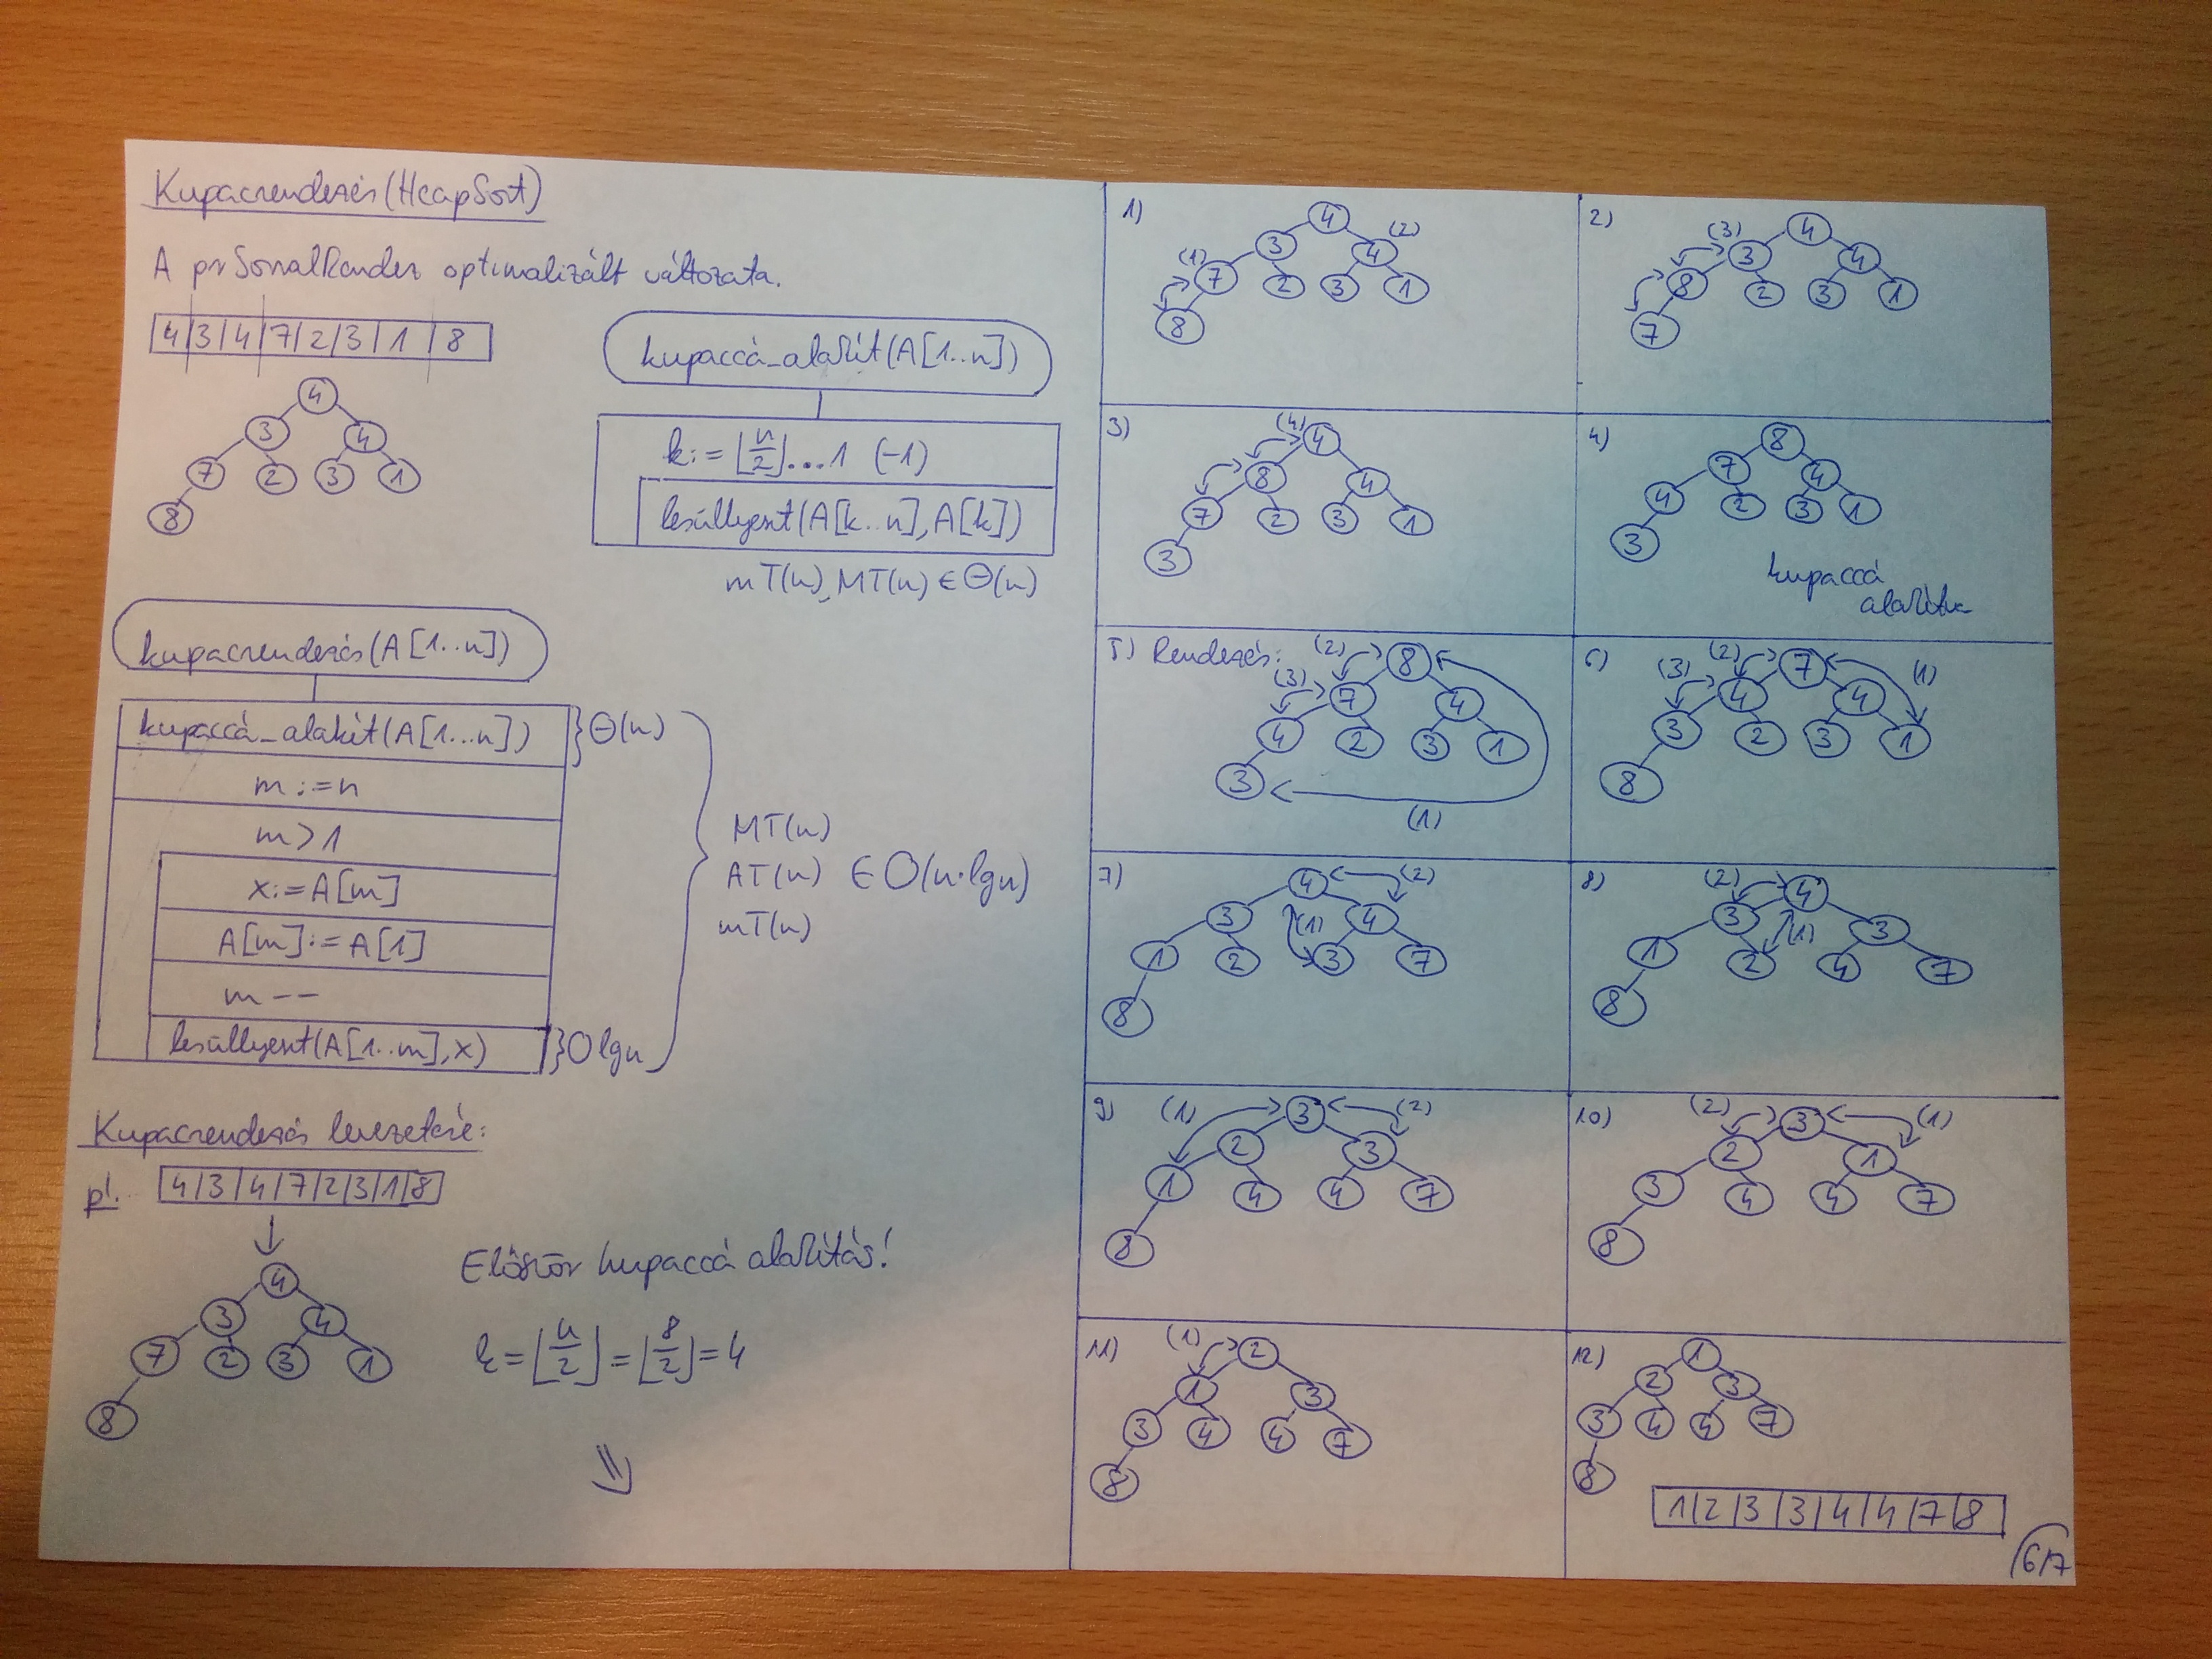 Kupacrendezés (HeapSort)
A prSorralRendez optimalizált változata.
4|3|4|7|2|3|1|8
4
3 4
7 2 3 1
8
kupaccá_alakít(A[1..n])
k:=⌊n/2⌋...1 (-1)
lesüllyeszt(A[k..n],A[k])
mT(n),MT(n)∈Θ(n)
kupacrendezés(A[1..n])
kupaccá_alakít(A[1...n]) }Θ(n)
m:=n
m>1
x:=A[m]
A[m]:=A[1]
m--
lesüllyeszt(A[1..m],x) }O lgn
MT(n)
AT(n) ∈ O(n·lgn)
mT(n)
Kupacrendezés levezetése:
pl. 4|3|4|7|2|3|1|8
4
3 4
7 2 3 1
8
Először kupaccá alakítás!
k=⌊n/2⌋=⌊8/2⌋=4
1)
4
3 4 (2)
(1) 7 2 3 1
8
2)
4
(3) 3 4
8 2 3 1
7
3)
(4) 4
8 4
7 2 3 1
3
4)
8
7 4
4 2 3 1
3
kupaccá
alakítva
5) Rendezés:
(2) 8
(3) 7 4
4 2 3 1
3
(1)
6)
(2) 7 (1)
(3) 4 4
3 2 3 1
8
7)
4 (2)
3 (1) 4
1 2 3 7
8
8)
(2) 4
3 (1) 3
1 2 4 7
8
9)
(1) 3 (2)
2 3
1 4 4 7
8
10)
(2) 3 (1)
2 1
3 4 4 7
8
11)
(1) 2
1 3
3 4 4 7
8
12)
1
2 3
3 4 4 7
8
1|2|3|3|4|4|7|8
6/7